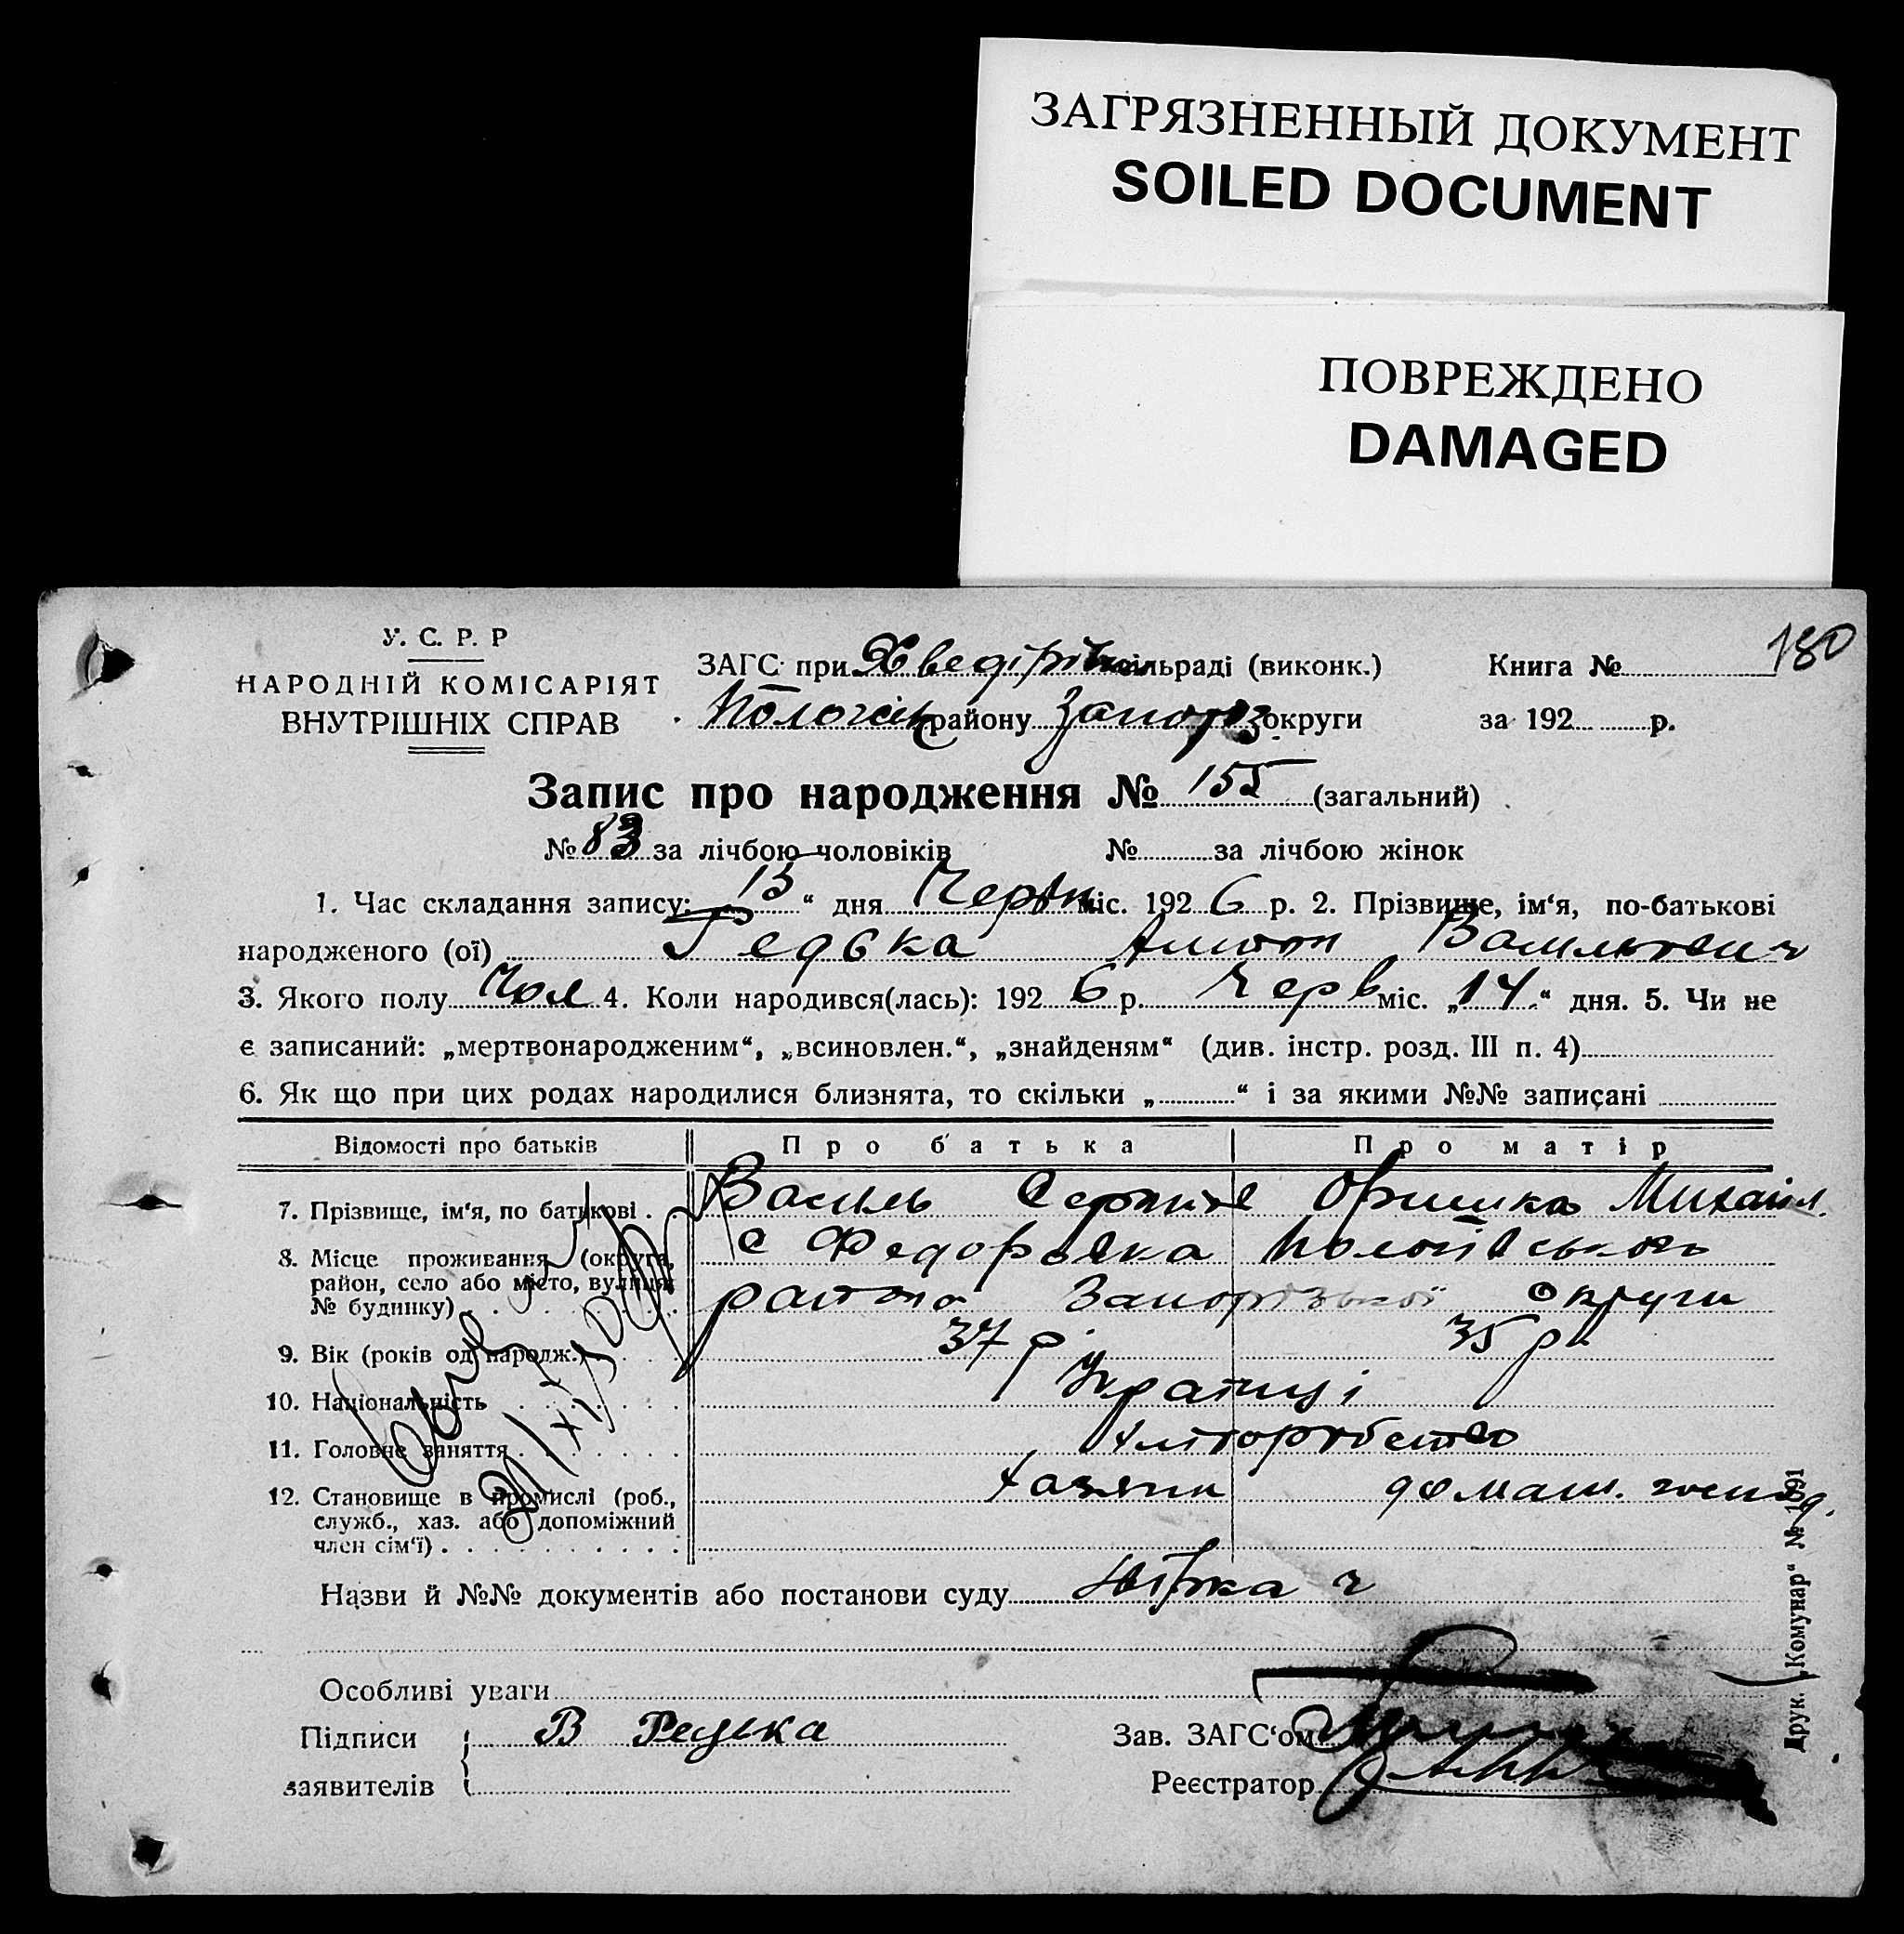 ЗАГРЯЗНЕННЫЙ ДОКУМЕНТ
SOILED DOCUMENT
ПОВРЕЖДЕНО
DAMAGED
180
У. С. Р. Р
НАРОДНІЙ КОМІСАРІЯТ
ВНУТРІШНІХ СПРАВ
ЗАГС при сільраді (виконк.) Книга №
району Запоріз округи за 192 р.
Запис про народження № 155 (загальний)
№ 83 за лічбою чоловіків № за лічбою жінок
1. Час складання запису: 15 “ дня Червн міс. 1926 р. 2. Прізвище, ім‘я, по-батькові
народженого (ої) Редька Антон Васильович
3. Якого полу Чол 4. Коли народився(лась): 1926 р. Черв міс. „14“ дня. 5. Чи не
є записаний: „мертвонародженим“, „всиновлен.“, „знайденям“ (див. інстр. розд. III п. 4)
6. Як що при цих родах народилися близнята, то скільки „ “ і за якими №№ записані
Відомості про батьків Про батька Про матір
7. Прізвище, ім‘я, по батькові . Василь Оришка Михайл.
8. Місце проживання (округа, с Федорівка
район, село або місто, вулиця, району Запорізької округи
№ будинку)
9. Вік (років од народж.) 37 р. 35 рк
10. Національність Українці
11. Головне заняття Хліборобство
12. Становище в промислі (роб., хазяїн домаш. господ.
служб., хаз. або допоміжний
член сім‘ї)
Назви й №№ документів або постанови суду
Особливі уваги
Підписи В Редька Зав. ЗАГС‘ом
заявителів Реєстратор
Друк. „Комунар“ № 1691